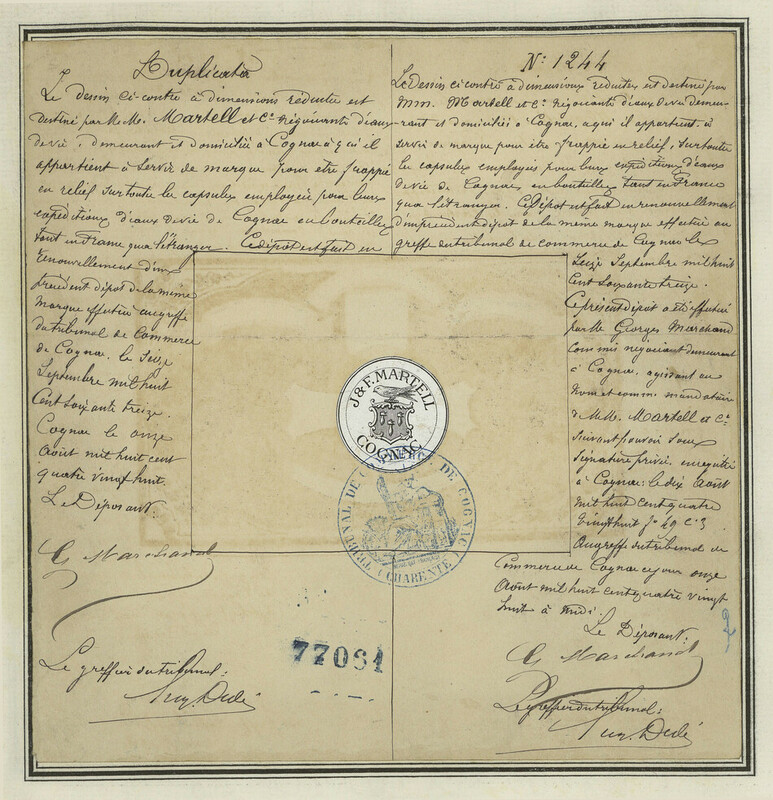 Duplicata
Le Dessin ci-contre à dimensions réduites est
destiné par M.M. Martell et Cie négociants d'eaux
de vie, demeurant et domiciliés à Cognac à qui il
appartient à servir de marque pour être frappée
en relief sur toute les capsules employées pour leurs
expéditions d'eaux de vie de Cognac en bouteilles
tant en France qu'à l'étranger. Ce dépôt est fait en
renouvellement d'un
précédent dépôt de la même
marque effectué au greffe
du tribunal de Commerce
de Cognac, le seize
Septembre mil huit
cent soixante treize.
Cognac le onze
Août mil huit cent
quatre vingt huit.
Le Déposant:
G Marchand
Le greffier du tribunal:
Nº 1244
Le Dessin ci-contre à dimensions réduites est destiné par
Mm. Martell et Cie négociants d'eaux de vie demeu-
rant et domiciliés à Cognac, à qui il appartient, à
servir de marque pour être frappée en relief, sur toute
les capsules employées pour leurs expéditions d'eaux
de vie de Cognac en bouteilles tant en France
qu'à l'étranger. Ce dépôt est fait en renouvellement
d'un précédent dépôt de la même marque effectué au
greffe du tribunal de commerce de Cognac les
seize Septembre mil huit
cent soixante treize.
Ce présent dépôt a été effectué
par M. Georges Marchand
commis négociant demeurant
à Cognac, agissant au
nom et comme mandataire
de M.M. Martell et Cie
suivant pouvoir sous
signature privée, enregistré
à Cognac le dix Août
mil huit cent quatre
vingt huit fo 49 Co 3
Au greffe du tribunal de
Commerce de Cognac ce jour onze
Août mil huit cent quatre vingt
huit à midi.
Le Déposant:
G Marchand
Le greffier du tribunal:
J&F. MARTELL
COGNAC
TRIBUNAL DE COMMERCE DE COGNAC
(CHARENTE)
77061